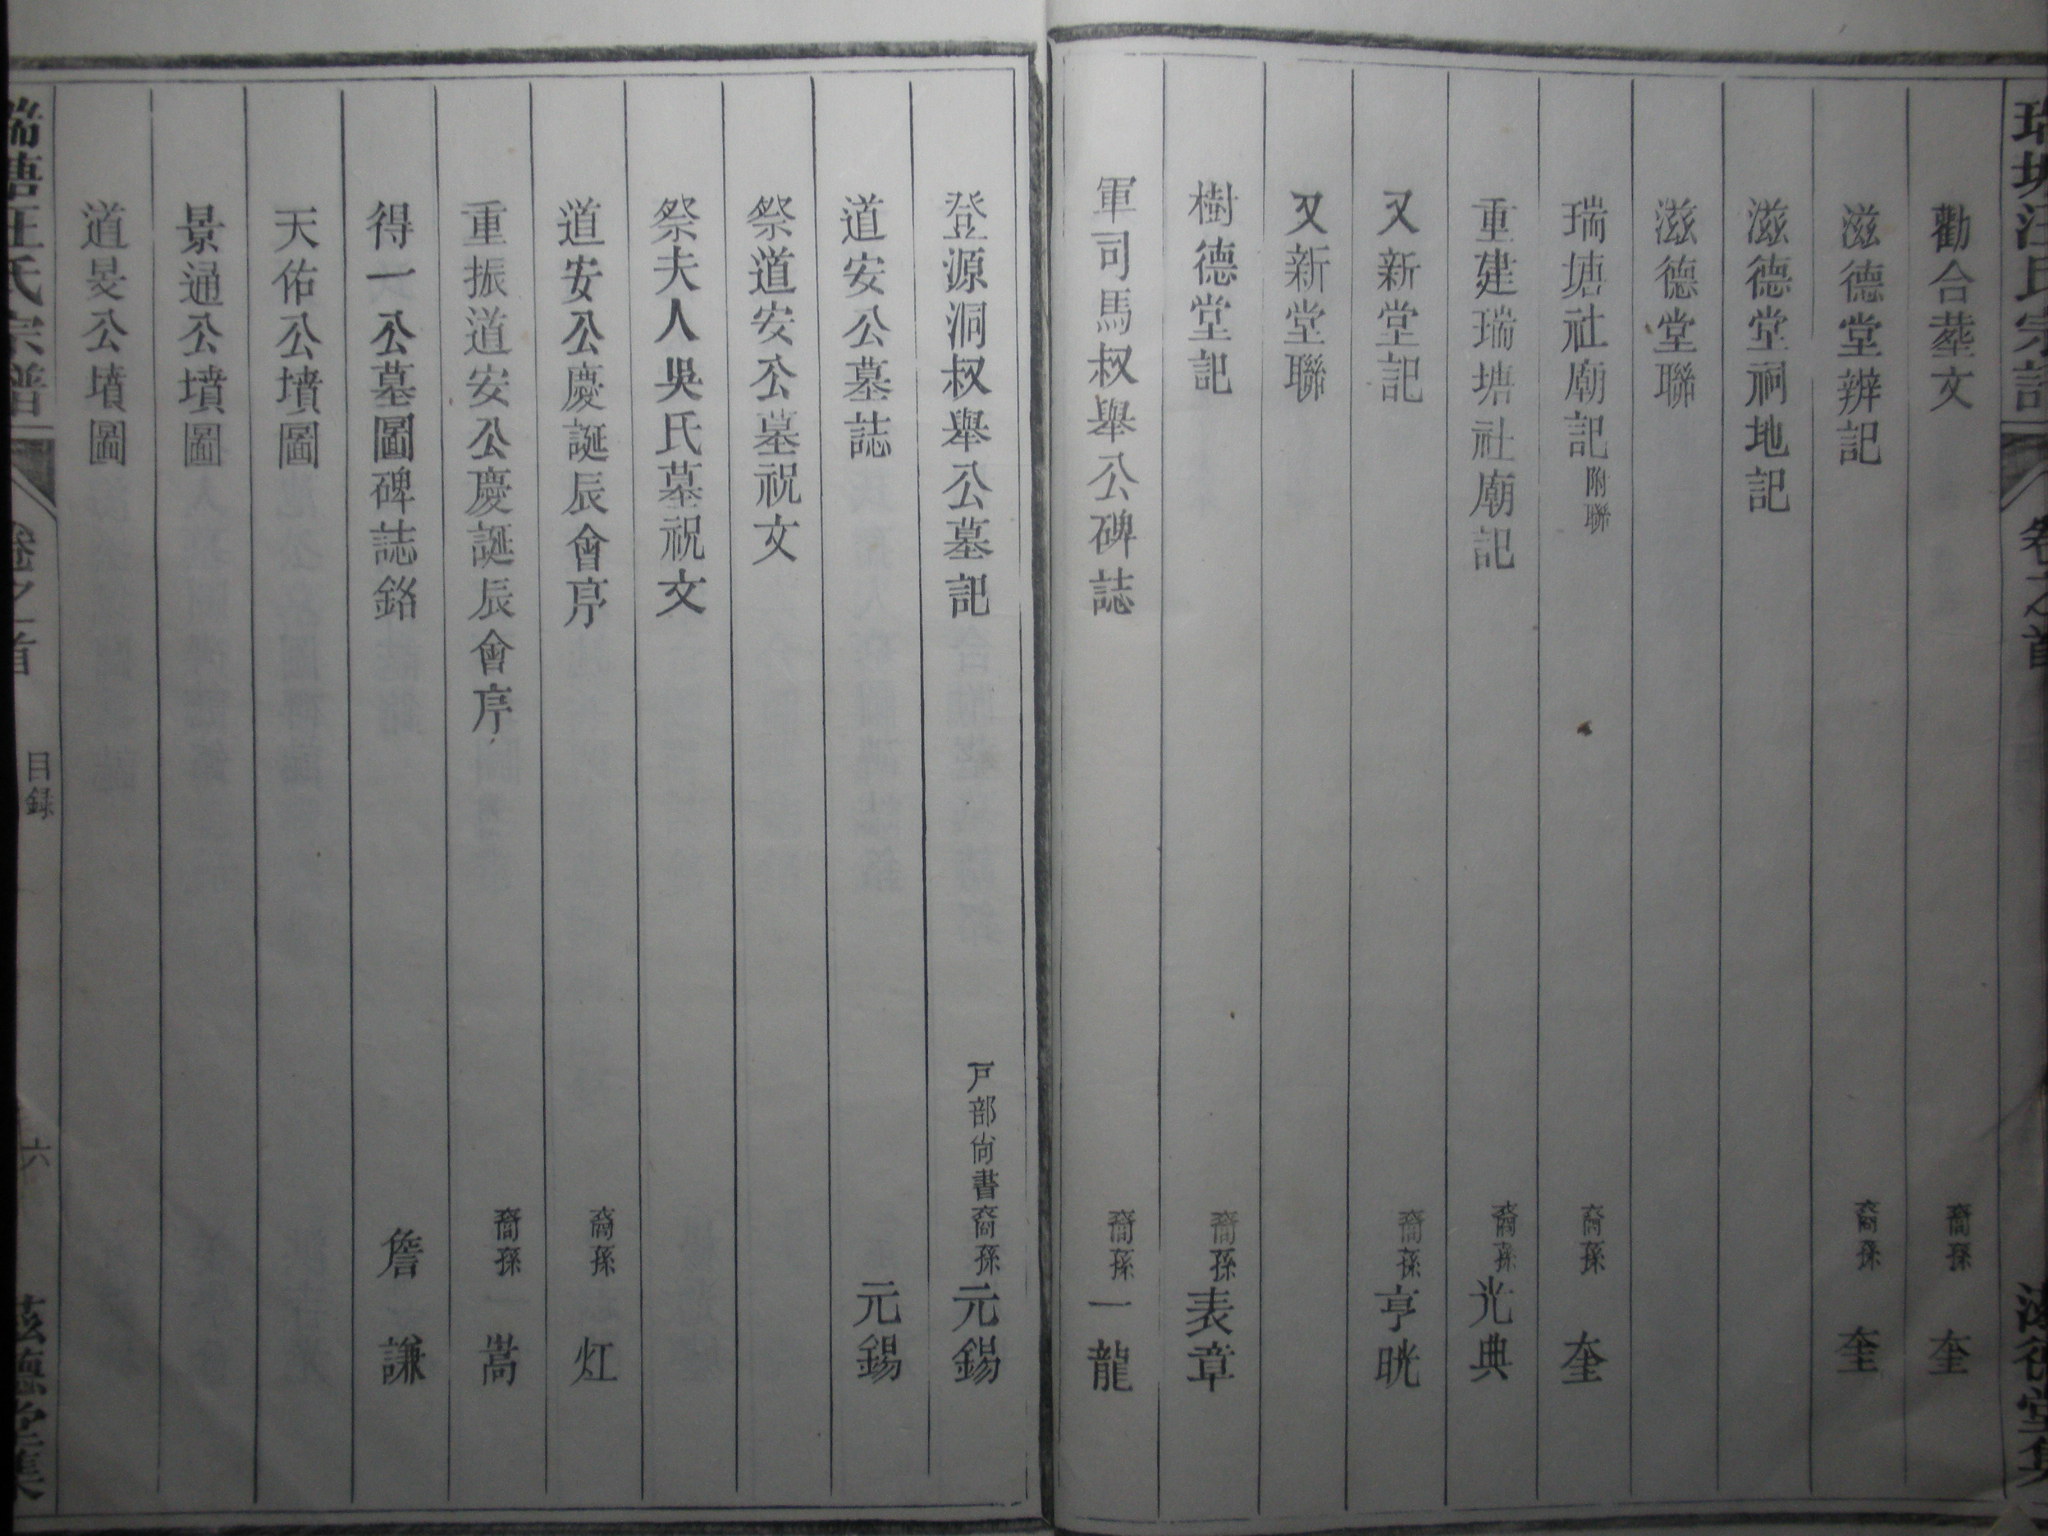 勸合塟文 裔孫 奎
滋德堂辨記 裔孫 奎
滋德堂祠地記
滋德堂聯
瑞塘社廟記 附聯 裔孫 奎
重建瑞塘社廟記 裔孫 光典
又新堂記 裔孫 亨晄
又新堂聯
樹德堂記 裔孫 表章
軍司馬叔舉公碑誌 裔孫 一龍
登源洞叔舉公墓記 戸部尚書裔孫 元錫
道安公墓誌 元錫
祭道安公墓祝文
祭夫人吳氏墓祝文
道安公慶誕辰會序 裔孫 灴
重振道安公慶誕辰會序 裔孫 一嵩
得一公墓圖碑誌銘 詹 謙
天佑公墳圖
景通公墳圖
道旻公墳圖
瑞塘汪氏宗譜 卷之首 目録 六 滋德堂集